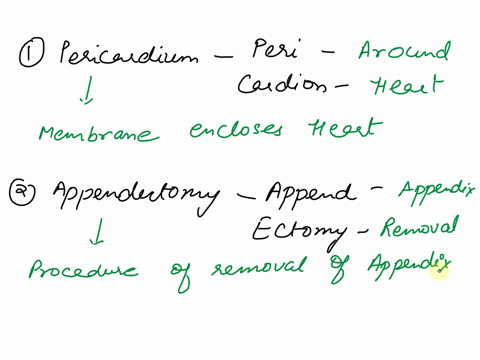 ① Pericardium – Peri – Around
Cardion – Heart
Membrane encloses Heart
② Appendectomy – Append – Appendix
Ectomy – Removal
Procedure of removal of Appendix